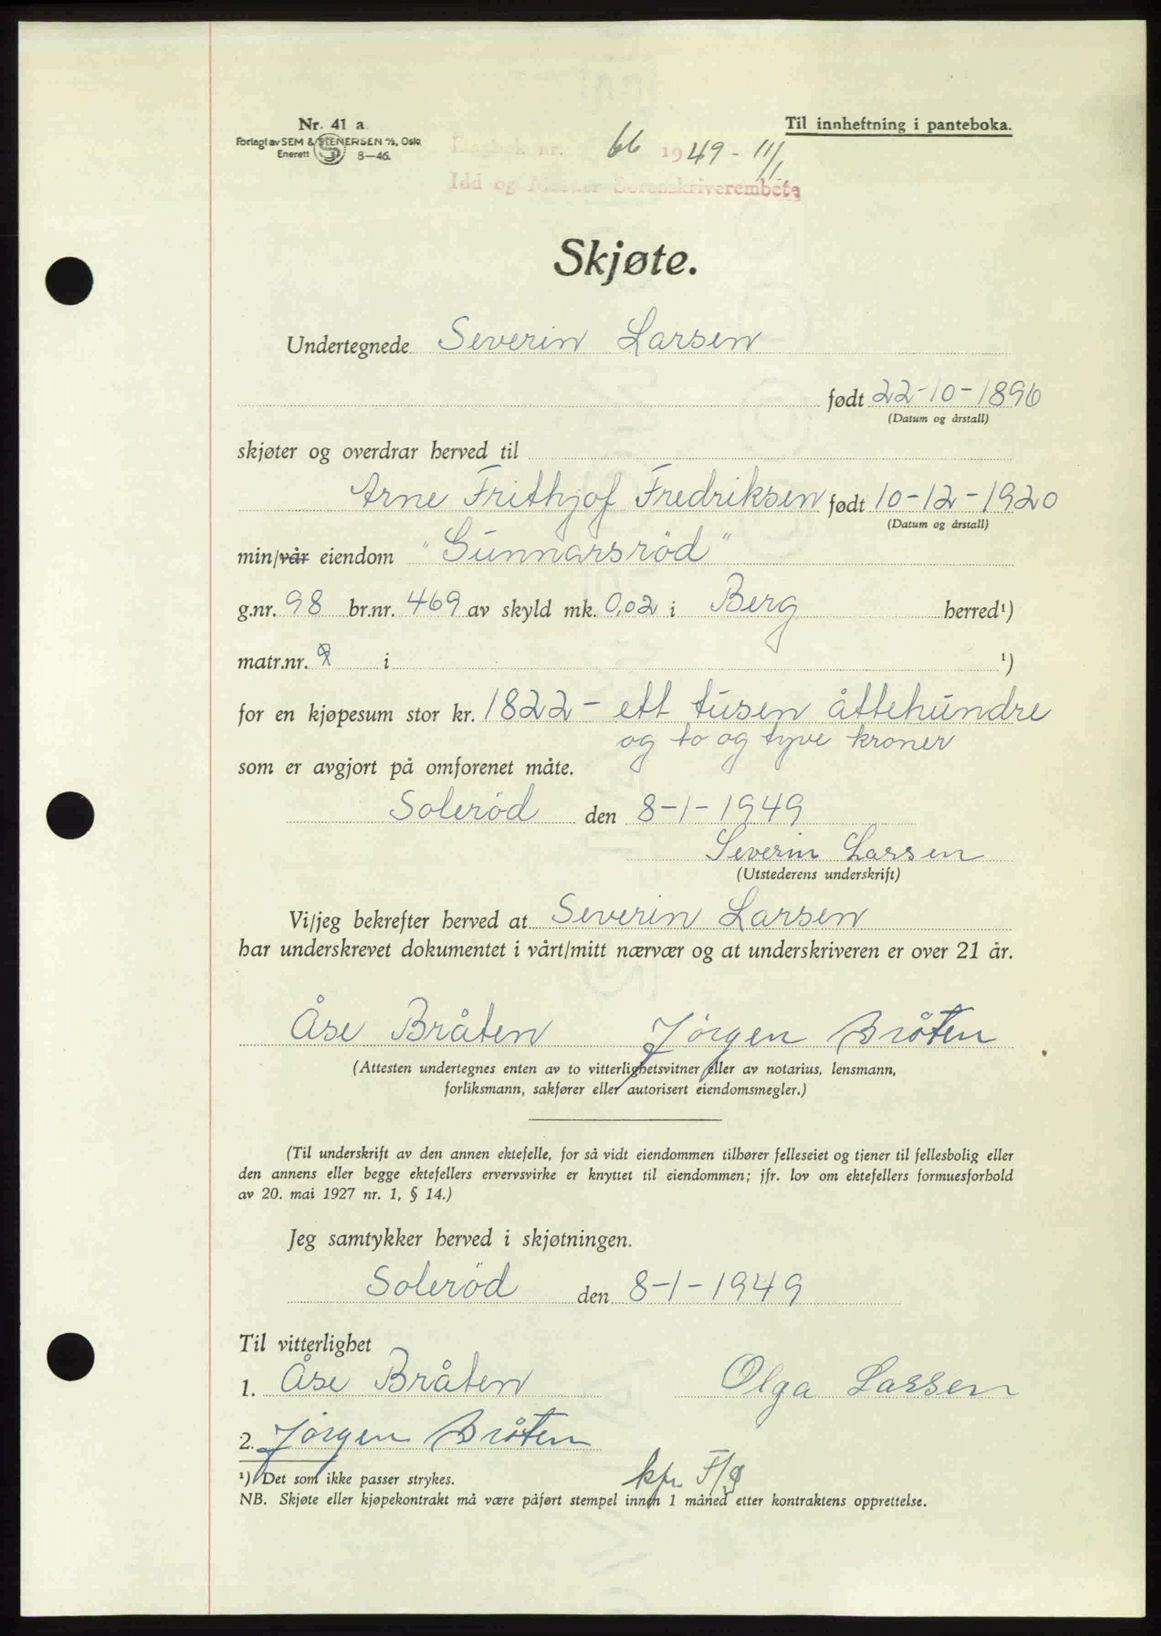 Nr. 41 a.
Forlagt av SEM & STENERSEN A/S, Oslo
Enerett 8—46.
Til innheftning i panteboka.
Dagbok nr. 66 1949 - 11/1
Idd og Marker Sorenskriverembete
Skjøte.
Undertegnede Severin Larsen
født 22-10-1896
(Datum og årstall)
skjøter og overdrar herved til
Arne Frithjof Fredriksen født 10-12-1920
(Datum og årstall)
min/vår eiendom "Gunnarsröd"
g.nr. 98 br.nr. 469 av skyld mk. 0,02 i Berg herred¹)
matr.nr. i ¹)
for en kjøpesum stor kr. 1822 - ett tusen åttehundre
og to og tyve kroner
som er avgjort på omforenet måte.
Solerød den 8-1-1949
Severin Larsen
(Utstederens underskrift)
Vi/jeg bekrefter herved at Severin Larsen
har underskrevet dokumentet i vårt/mitt nærvær og at underskriveren er over 21 år.
Åse Bråten Jörgen Bråten
(Attesten undertegnes enten av to vitterlighetsvitner eller av notarius, lensmann,
forliksmann, sakfører eller autorisert eiendomsmegler.)
(Til underskrift av den annen ektefelle, for så vidt eiendommen tilhører felleseiet og tjener til fellesbolig eller
den annens eller begge ektefellers ervervsvirke er knyttet til eiendommen; jfr. lov om ektefellers formuesforhold
av 20. mai 1927 nr. 1, § 14.)
Jeg samtykker herved i skjøtningen.
Solerød den 8-1-1949
Til vitterlighet
1. Åse Bråten Olga Larsen
2. Jörgen Bråten
¹) Det som ikke passer strykes.
NB. Skjøte eller kjøpekontrakt må være påført stempel innen 1 måned etter kontraktens opprettelse.